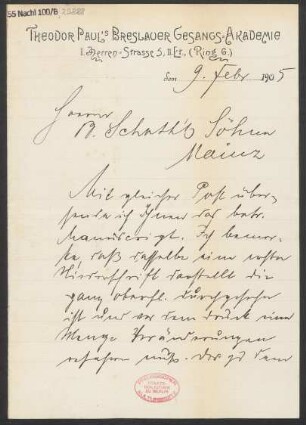 55 Nachl 100/B,
THEODOR PAUL'S BRESLAUER GESANGS-AKADEMIE
I. Herren-Strasse 5, II. Et., (Ring 6.)
den 9. Febr 1905
Herren
B. Schott's Söhne
Mainz
Mit gleicher Post über-
sende ich Ihnen das betr.
Manuscript. Ich bemer-
ke, daß dasselbe eine erste
Niederschrift darstellt die
ganz oberfl. durchgesehen
ist und vor dem Druck eine
Menge Veränderungen
erfahren muß. Der zu dem